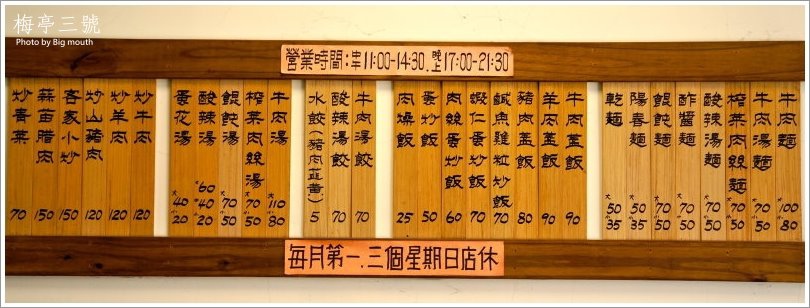 梅亭三號
Photo by Big mouth
營業時間:中11:00-14:30.晚上17:00-21:30
牛肉麵 大100 小80
牛肉湯麵 大70 小50
榨菜肉絲麵 大70 小50
酸辣湯麵 大70 小50
酢醬麵 大70 小50
餛飩麵 大70 小50
陽春麵 大50 小35
乾麵 大50 小35
牛肉蓋飯 90
羊肉蓋飯 90
豬肉蓋飯 80
鹹魚雞粒炒飯 70
蝦仁蛋炒飯 70
肉絲蛋炒飯 60
蛋炒飯 50
肉燥飯 25
牛肉湯餃 70
酸辣湯餃 70
水餃(豬肉韮黃) 5
牛肉湯 大110 小80
榨菜肉絲湯 大70 小50
餛飩湯 大70 小50
酸辣湯 大60 中40 小20
蛋花湯 大40 小20
炒牛肉 120
炒羊肉 120
炒山豬肉 120
客家小炒 150
蒜苗腊肉 150
炒青菜 70
每月第一.三個星期日店休